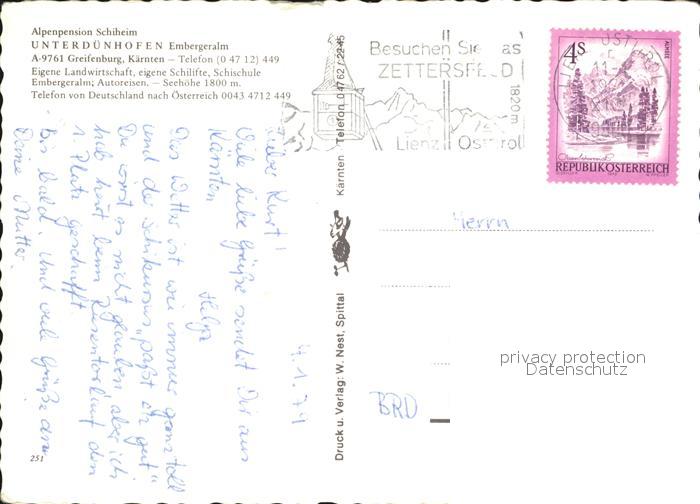 Alpenpension Schiheim
UNTERDÜNHOFEN Embergeralm
A-9761 Greifenburg, Kärnten — Telefon (0 47 12) 449
Eigene Landwirtschaft, eigene Schilifte, Schischule
Embergeralm; Autoreisen. — Seehöhe 1800 m.
Telefon von Deutschland nach Österreich 0043 4712 449
Besuchen Sie das
ZETTERSFELD
1820m
Lienz Osttirol
4S
ALMSEE
REPUBLIK ÖSTERREICH
4.1.79
Lieber Kurt!
Viele liebe Grüße sendet Dir aus
Kärnten
Helga
Das Wetter ist wie immer ganz toll
und der Schikursus "paßt eh gut"
Du wirst es nicht glauben aber ich
hab heut beim Riesentorlauf den
1. Platz geschafft.
Bis bald und viele Grüße an
Deine Mutter.
251
Druck u. Verlag: W. Nest, Spittal
Kärnten Telefon 04762/2245
Herrn
BRD
privacy protection
Datenschutz